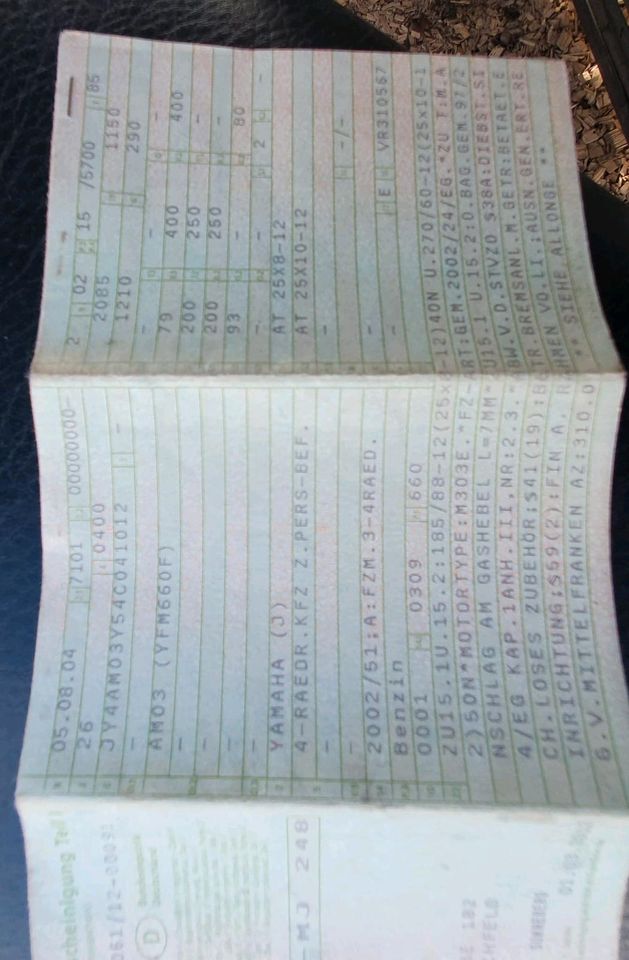 cheinigung Teil I
D
-MJ 248
182
CHFELD
SONNEBERG
05.08.04 7101 00000000-
26 0400
JY4AM03Y54C041012
- -
AM03 (YFM660F)
-
-
-
-
YAMAHA (J)
4-RAEDR.KFZ Z.PERS-BEF.
-
-
2002/51;A:FZM.3-4RAED.
Benzin
0001 0309 660
2 02 15 /5700 85
2085 1150
1210 290
- - -
79 400 400
200 250 -
200 250 -
93 - 80
- - 2 -
AT 25X8-12
AT 25X10-12
-
- -/-
- E VR310567
ZU15.1U.15.2:185/88-12(25X8-12)4ON U.270/60-12(25X10-1
2)5ON*MOTORTYPE:M303E.*FZ-ART:GEM.2002/24/EG.*ZU T:M.A
NSCHLAG AM GASHEBEL L=7MM*ZU15.1 U.15.2:O.BAG.GEM.97/2
4/EG KAP.1ANH.III,NR:2.3.*ABW.V.D.STVZO §38A:DIEBST.SI
CH.LOSES ZUBEHÖR;§41(19):BETR.BREMSANL.M.GETR:BETAET.E
INRICHTUNG;§59(2):FIN A. RAHMEN VO.LI.;AUSN.GEN.ERT.RE
G.V.MITTELFRANKEN AZ:310.0 ** SIEHE ALLONGE **